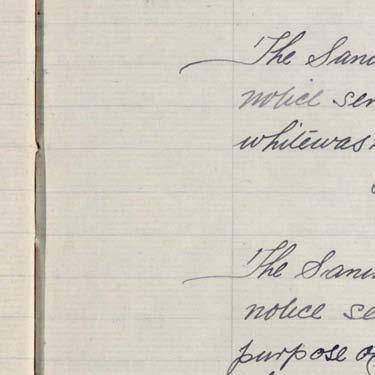 The Sani
notice ser
whitewas
The Sani
notice se
purpose of